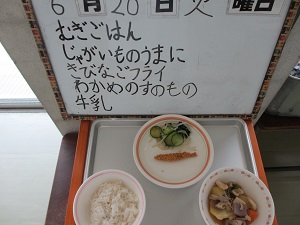 6月20日火曜日
むぎごはん
じゃがいものうまに
きびなごフライ
わかめのすのもの
牛乳